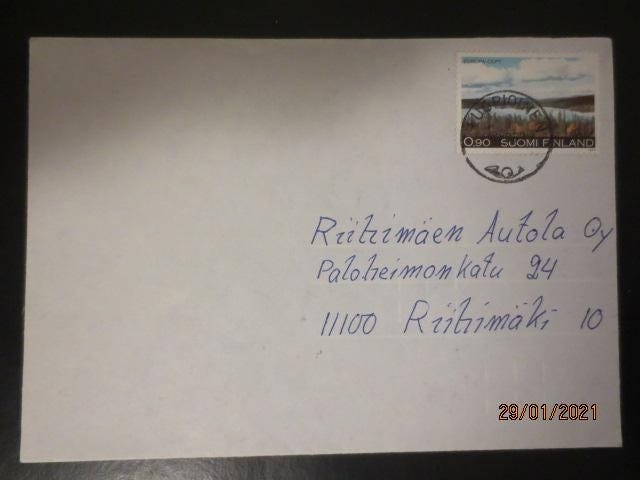 EUROPA CEPT
0.90 SUOMI FINLAND
Riihimäen Autola Oy
Paloheimonkatu 24
11100 Riihimäki 10
29/01/2021